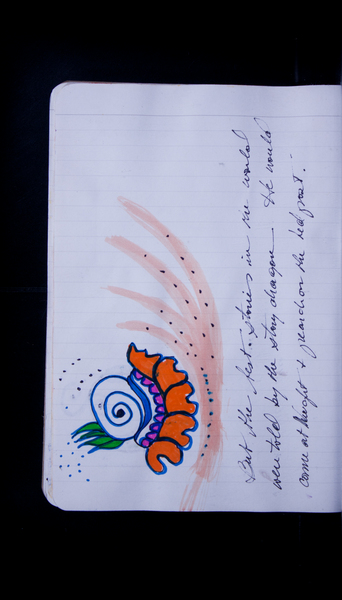 But the best stories in the world
were told by the story dragon. He would
came at night & perch on the bed post.